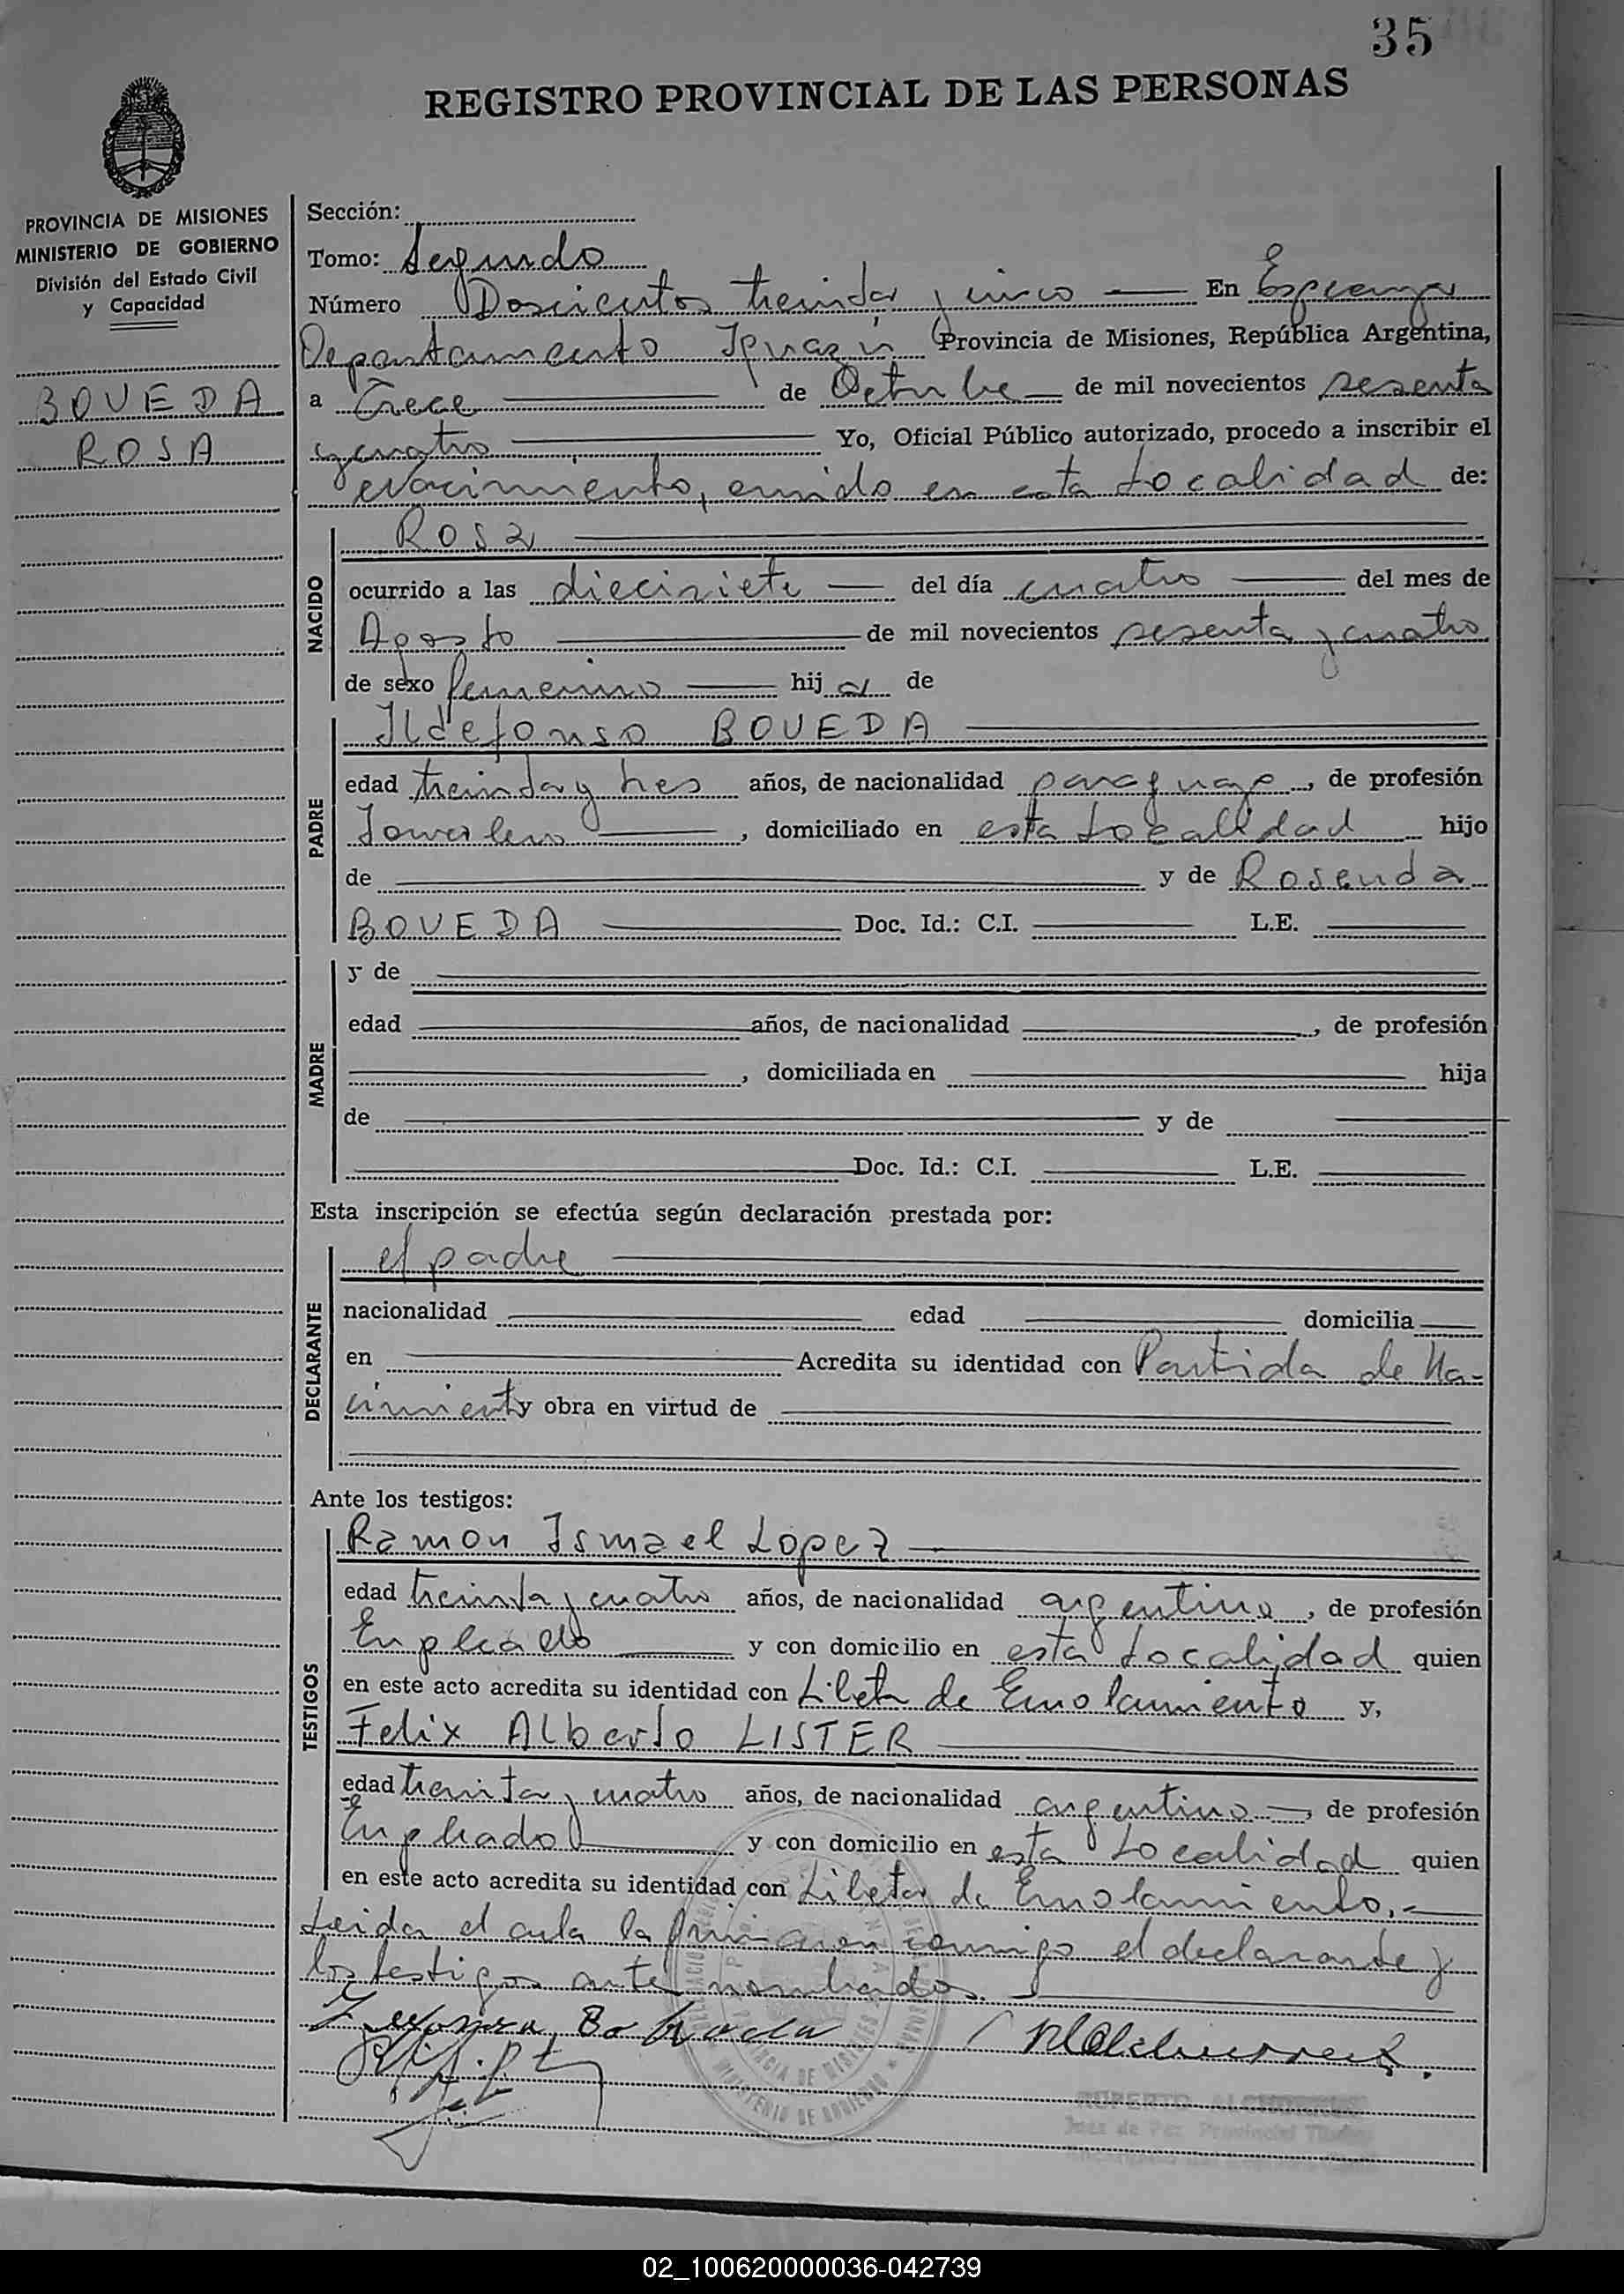 35
REGISTRO PROVINCIAL DE LAS PERSONAS
PROVINCIA DE MISIONES
MINISTERIO DE GOBIERNO
División del Estado Civil
y Capacidad
BOVEDA
ROSA
Sección:
Tomo: Segundo
Número Doscientos treinta y cinco En Esperanza
Departamento Iguazú Provincia de Misiones, República Argentina,
a Trece de Octubre de mil novecientos sesenta
y cuatro Yo, Oficial Público autorizado, procedo a inscribir el
Nacimiento, en esta Localidad de:
NACIDO
Rosa
ocurrido a las diecisiete del día cuatro del mes de
Agosto de mil novecientos sesenta y cuatro
de sexo femenino hija de
PADRE
Ildefonso BOVEDA
edad treinta y tres años, de nacionalidad paraguayo, de profesión
Jornalero, domiciliado en esta Localidad hijo
de y de Rosenda
BOVEDA Doc. Id.: C.I. L.E.
MADRE
y de
edad años, de nacionalidad , de profesión
, domiciliada en hija
de y de
Doc. Id.: C.I. L.E.
Esta inscripción se efectúa según declaración prestada por:
DECLARANTE
el padre
nacionalidad edad domicilia
en Acredita su identidad con Partida de Na-
cimiento y obra en virtud de
Ante los testigos:
TESTIGOS
Ramon Ismael Lopez
edad treinta y cuatro años, de nacionalidad argentino, de profesión
Empleado y con domicilio en esta Localidad quien
en este acto acredita su identidad con Libeta de Enrolamiento y,
Felix Alberto LISTER
edad treinta y cuatro años, de nacionalidad argentino, de profesión
Empleado y con domicilio en esta Localidad quien
en este acto acredita su identidad con Libeta de Enrolamiento.-
Leida el acta la firman conmigo el declarante y
los testigos ante nombrados.
02_100620000036-042739